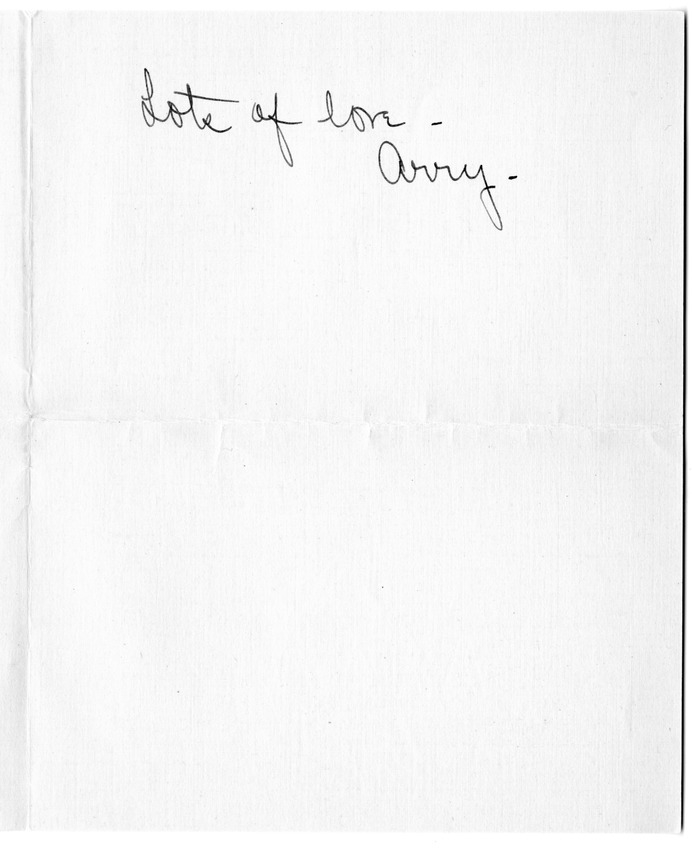 Lots of love -
Arry -